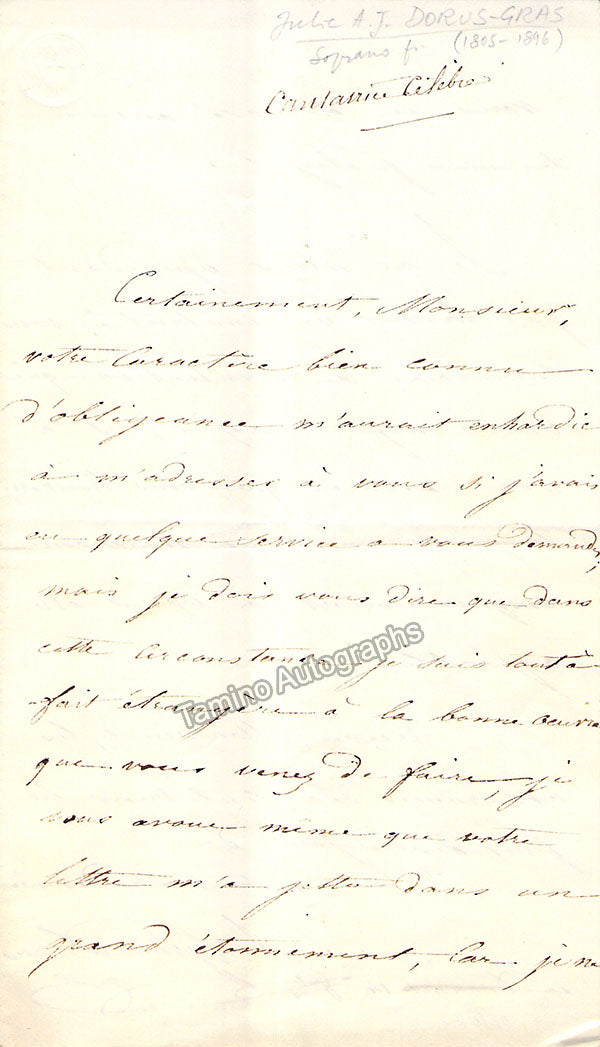 Julie A.J. DORUS-GRAS
Soprano fr. (1805-1896)
Cantatrice Célèbre
Certainement, Monsieur,
votre Caractère bien connu
d'obligeance m'aurait enhardie
à m'adresser à vous si j'avais
eu quelque service a vous demander;
mais je dois vous dire que dans
cette Circonstance je suis tout à
fait étrangère à la bonne œuvre
que vous venez de faire, je
vous avoue même que votre
lettre m'a jettée dans un
grand étonnement, Car je ne
Tamino Autographs